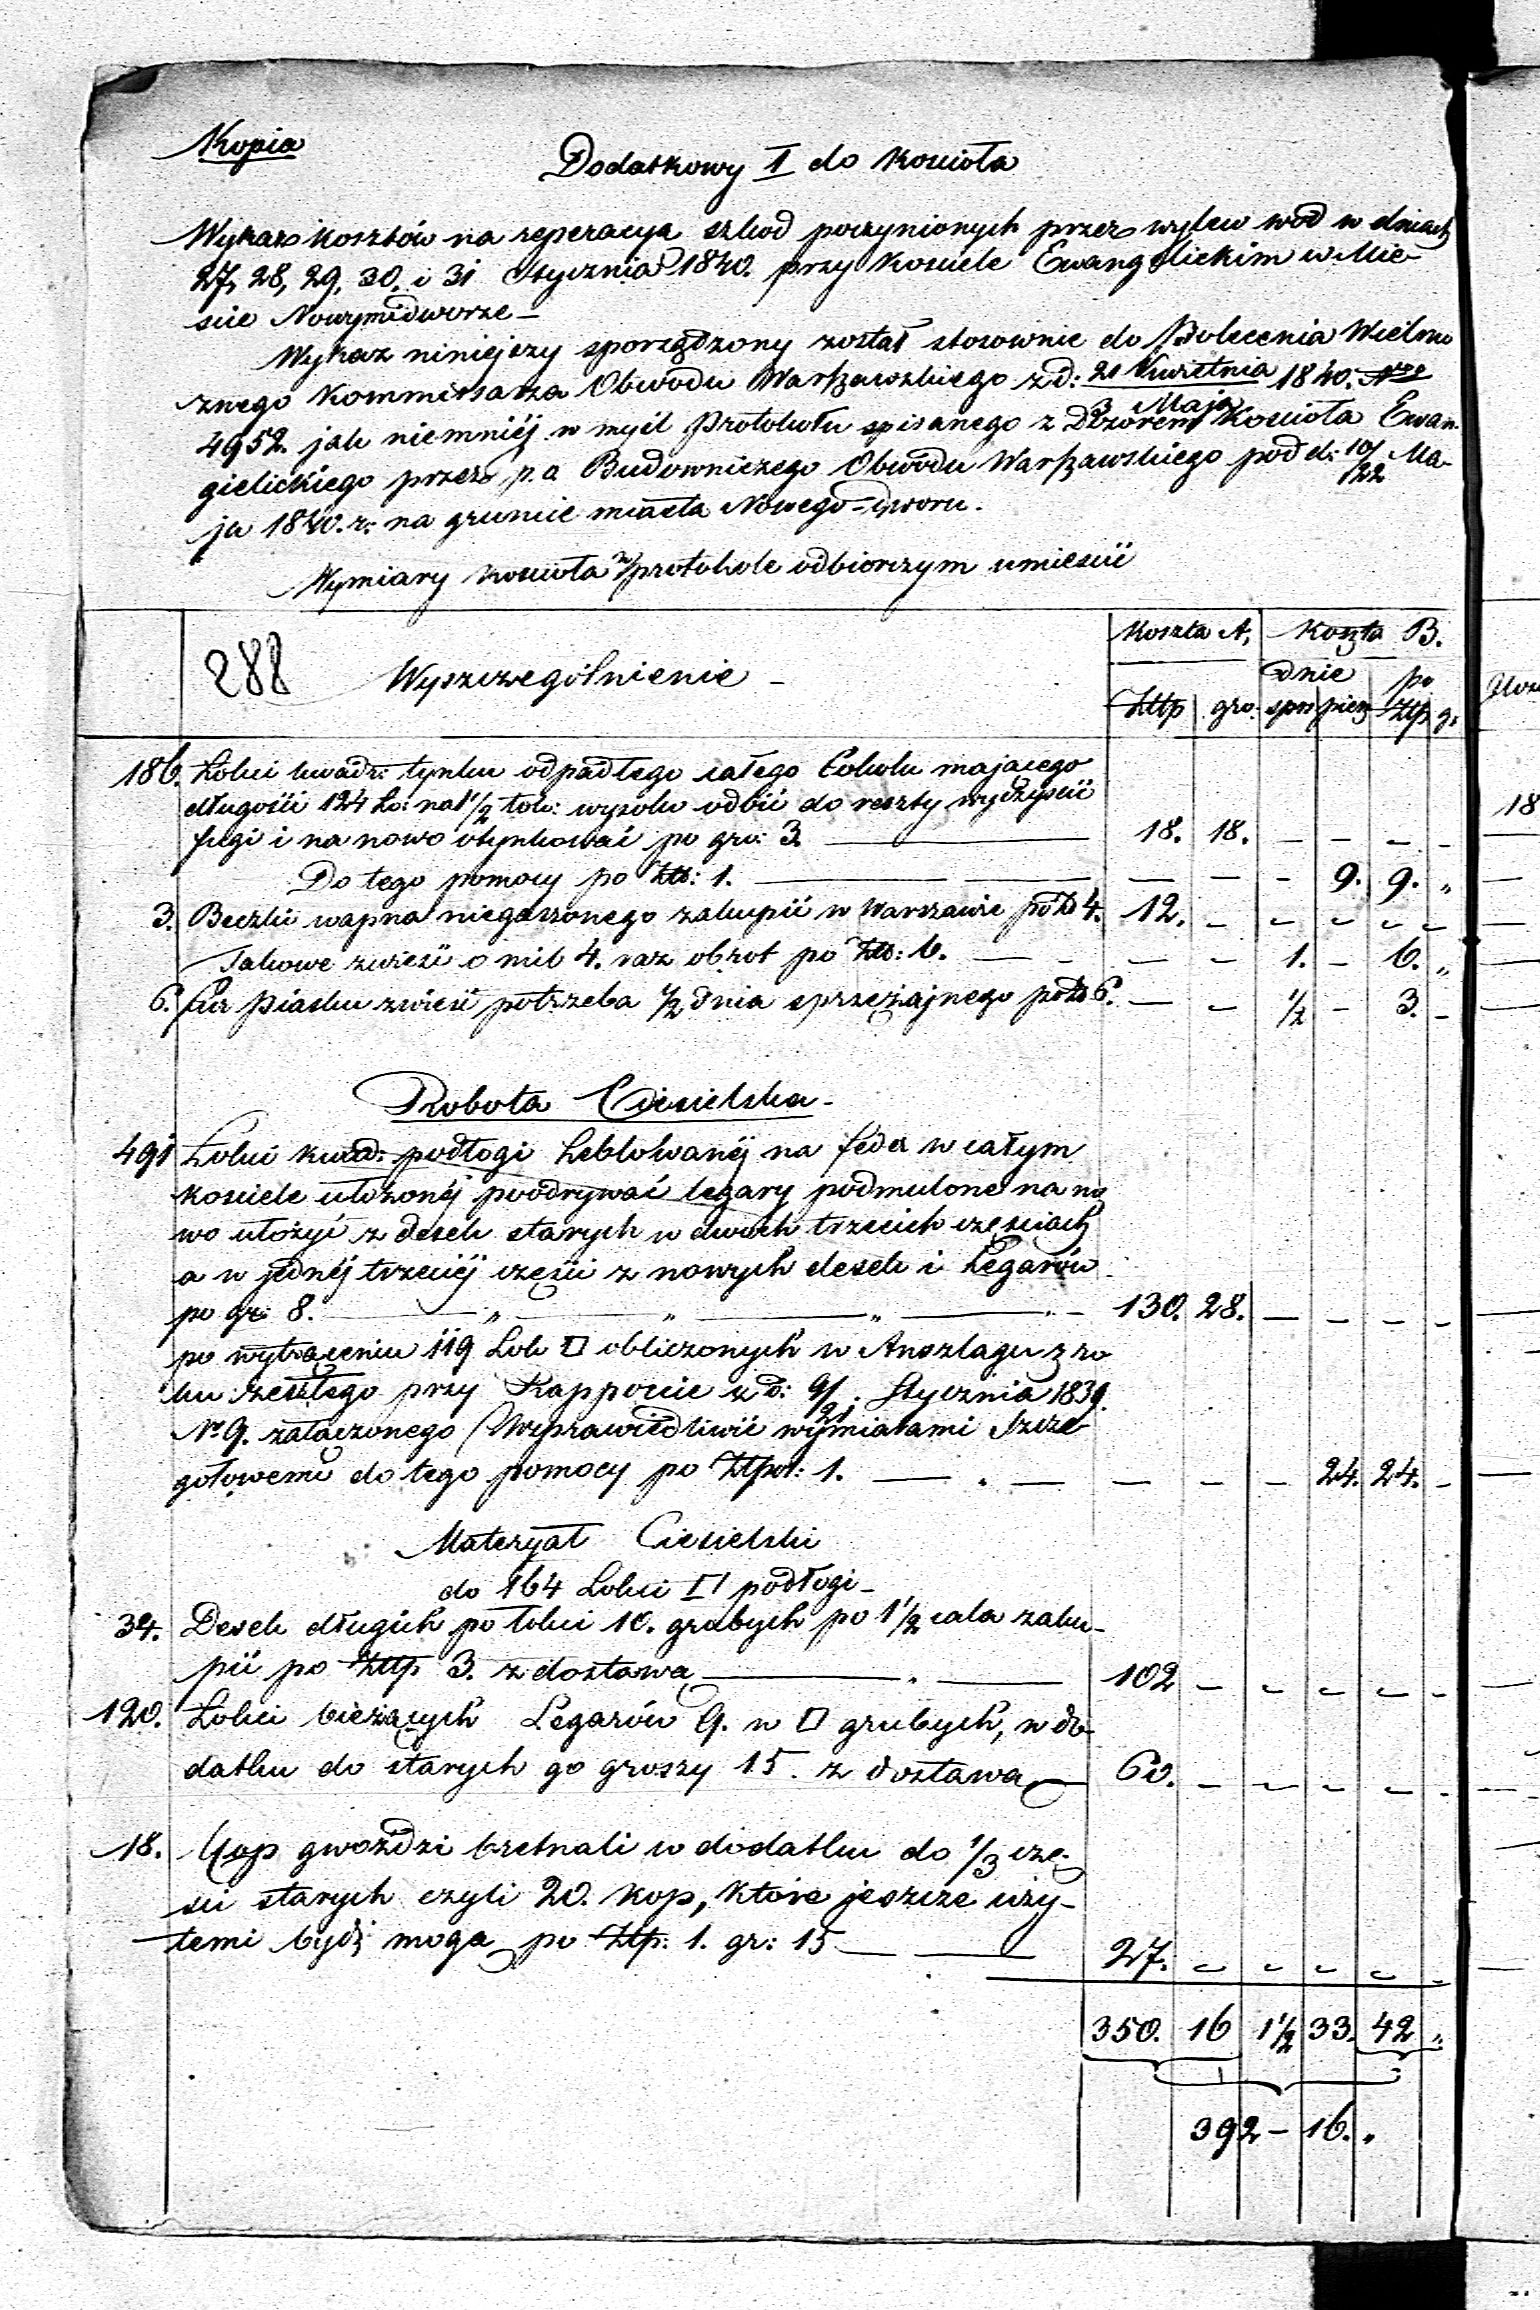 Kopia
Dodatkowy I do Koscioła
Wykaz kosztów na reperacyą szkod poczynionych przez wylew wod w dniach
27, 28, 29, 30, i 31 Stycznia 1840. przy Kosciele Ewangelickim w Mie-
scie Nowymdworze –
Wykaz niniejszy sporządzony został stosownie do Polecenia Wielmo
znego Kommissarza Obwodu Warszawskiego z d: 21 Kwietnia / 3 Maja 1840. Nro
4952. jak niemniéj w myśl Protokułu spisanego z Dozorem Kościoła Ewan-
gielickiego przez p.a Budowniczego Obwodu Warszawskiego pod d: 10/22 Ma-
ja 1840. r: na gruncie miasta Nowego-Dworu.
Wymiary kościoła w protokole odbiorczym umiescić
288 Wyszczególnienie – Koszta A, Koszta B.
dnie po
Złtp gro: sprz piesz Złtp g:
186. Łokci kwadr: tynku odpadłego całego Cokolu mającego
długości 124 Ło: na 1 1/2 łok: wysoko odbić do reszty wyczyścić
fugi i na nowo otynkować po gro: 3. — 18. 18. – – – –
Do tego pomocy po Złt: 1. — – – – 9. 9. „
3. Beczki wapna niegaszonego zakupić w Warszawie po Zł 4. 12. – – – – –
Takowe zwieść o mil 4. raz obrot po Złt: 6. – – – 1. – 6. „
6. Fur Piasku zwieść potrzeba 1/2 dnia sprzężajnego po Zł 6. – – 1/2 – 3. –
Robota Ciesielska –
491 Łokci kwad: podłogi heblowanéj na feder w całym
kosciele ułożonéj poodrywać legary podmulone na no
wo ułożyć z desek starych w dwoch trzecich częsciach
a w jednéj trzeciéj części z nowych desek i Legarów
po gr: 8. — „ — „ — „ — 130. 28. – – – –
po wytrąceniu 119 Łok □ obliczonych w Anszlagu z ro
ku zeszłego przy Rapporcie z d: 9/21. Stycznia 1839.
No 9. załączonego (Usprawiedliwić wymiarami Szcze-
gołowemi do tego pomocy po Złpol: 1. — – – – 24. 24. –
Materyał Ciesielski
do 164 Łokci □ podłogi –
34. Desek długich po łokci 10. grubych po 1 1/2 cala zaku-
pić po Złtp 3. z dostawą — 102 – – – – –
120. Łokci bieżących Legarów 9. w □ grubych, w do-
datku do starych go groszy 15. z dostawą — 60. – – – – –
18. Kop gwoździ bretnali w dodatku do 1/3 czę-
sci starych czyli 20. kop, które jeszcze uży-
temi bydź mogą po Złtp: 1. gr: 15 — 27. – – – – –
350. 16 1 1/2 33. 42 „
392 – 16. „